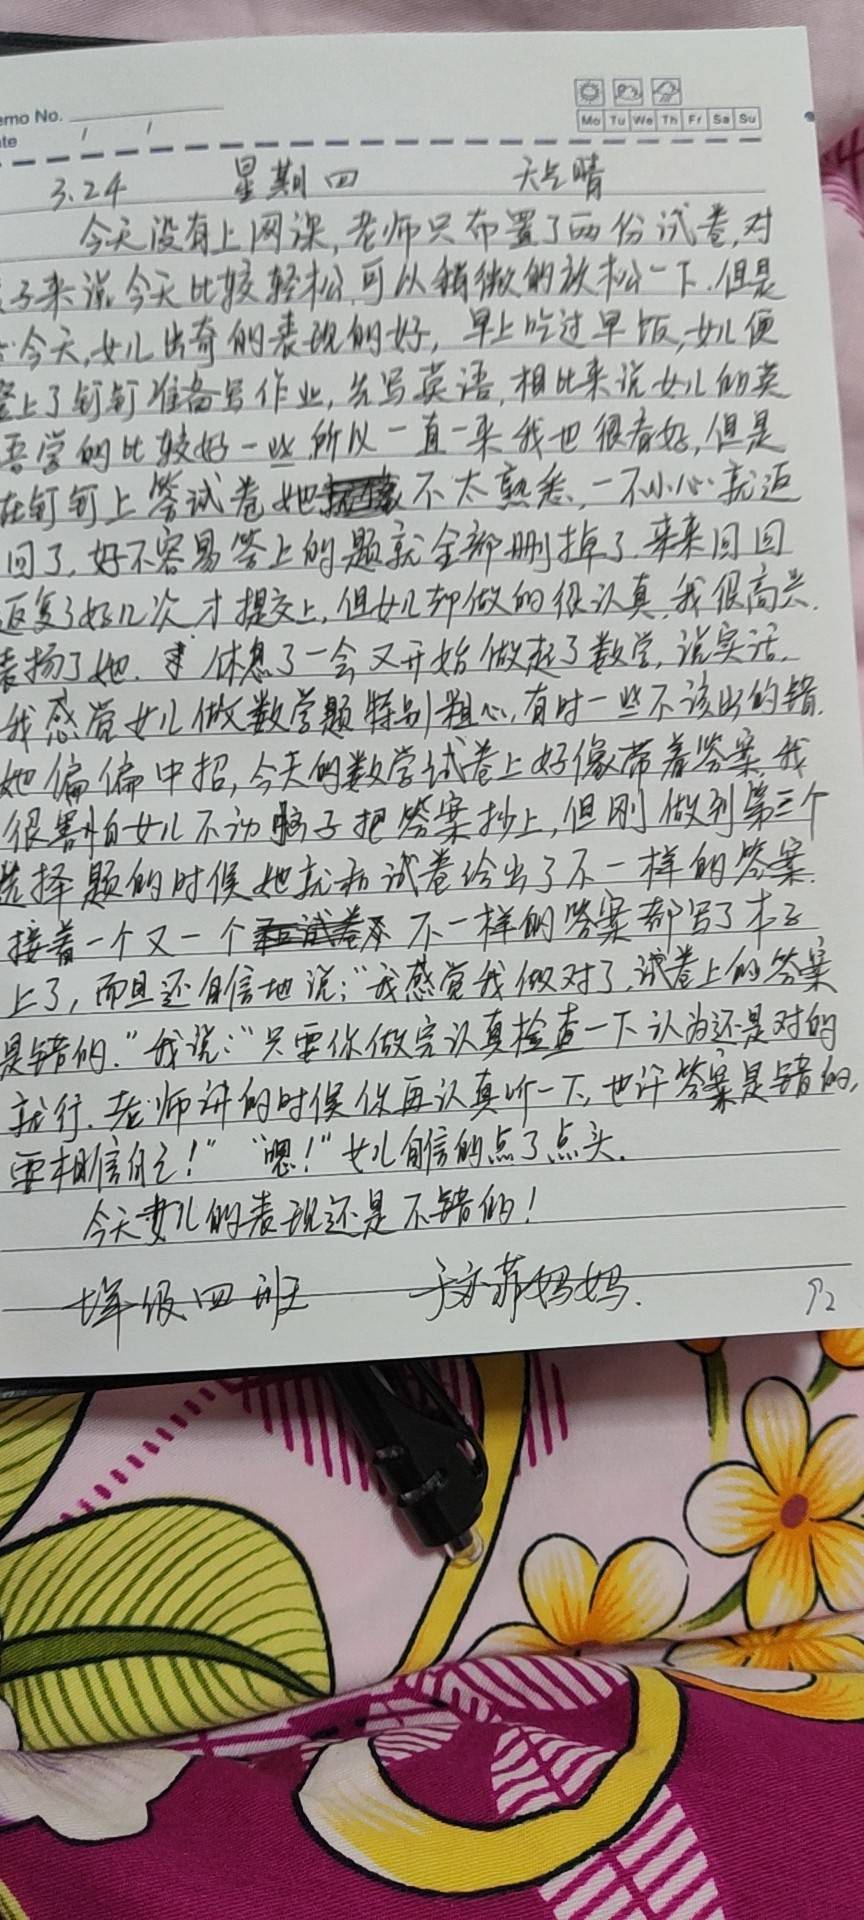 emo No.
te / /
Mo Tu We Th Fr Sa Su
3.24 星期四 天气晴
今天没有上网课,老师只布置了两份试卷,对
子来说今天比较轻松,可以稍微的放松一下.但是
今天,女儿出奇的表现的好,早上吃过早饭,女儿便
登上了钉钉准备写作业,先写英语,相比来说女儿的英
语学的比较好一些.所以一直一来我也很看好,但是
在钉钉上答试卷她不太熟悉,一不小心就返
回了,好不容易答上的题就全部删掉了.来来回回
返复了好几次才提交上,但女儿却做的很认真,我很高兴.
表扬了她.休息了一会又开始做起了数学,说实话,
我感觉女儿做数学题特别粗心,有时一些不该出的错.
她偏偏中招,今天的数学试卷上好像带着答案,我
很害怕女儿不动脑子把答案抄上,但刚做到第三个
选择题的时候她就和试卷给出了不一样的答案.
接着一个又一个不一样的答案都写了本子
上了,而且还自信地说:“我感觉我做对了,试卷上的答案
是错的.”我说:“只要你做完认真检查一下认为还是对的
就行.老师讲的时候你再认真听一下,也许答案是错的,
要相信自己!”“嗯!”女儿自信的点了点头.
今天女儿的表现还是不错的!
年级四班 妈妈.
P2